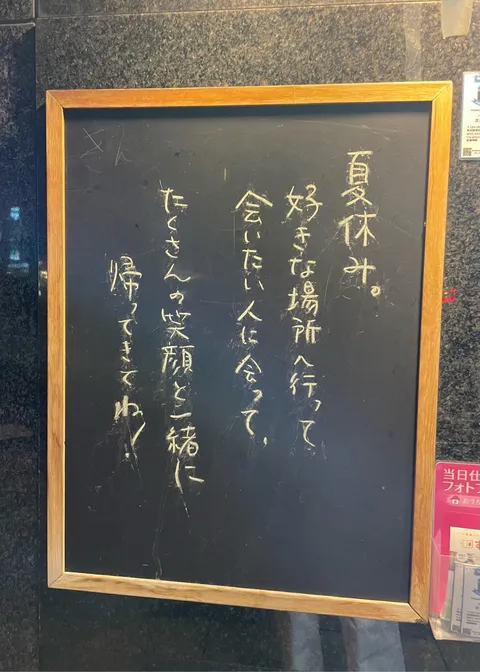 夏休み。
好きな場所へ行って
会いたい人に会って、
たくさんの笑顔と一緒に
帰ってきてね!
当日仕
フォトフ